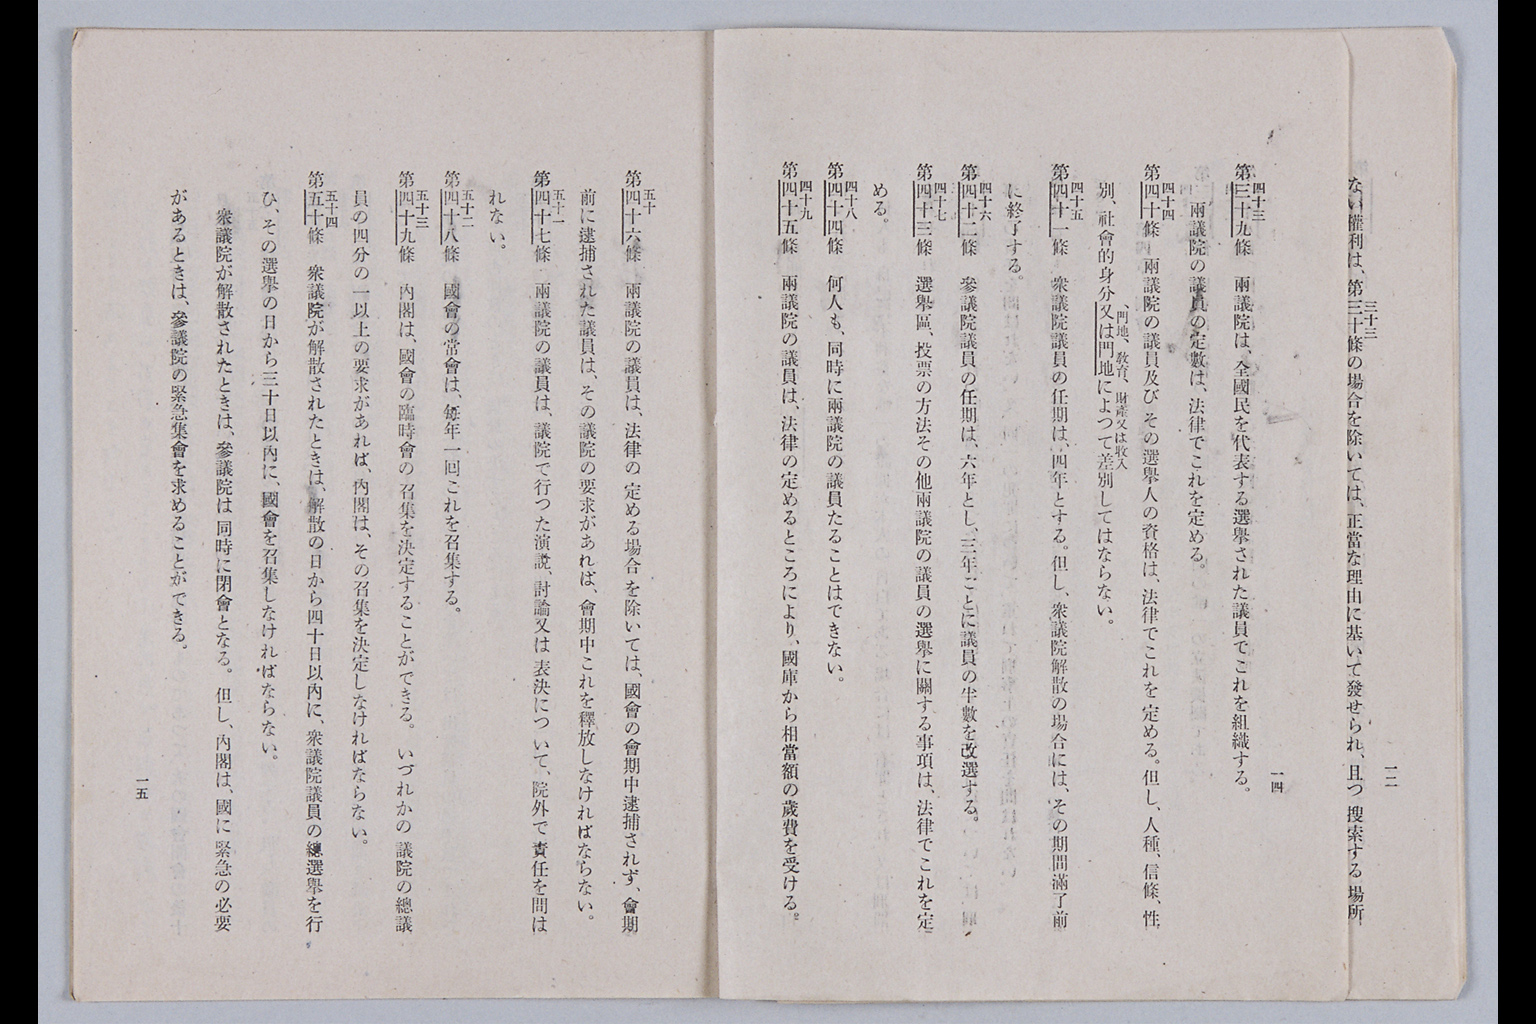 ない權利は、第三十條の場合を除いては、正當な理由に基いて發せられ、且つ搜索する場所
三十三
一二
一四
四十三
第三十九條 兩議院は、全國民を代表する選擧された議員でこれを組織する。
兩議院の議員の定數は、法律でこれを定める。
四十四
第四十條 兩議院の議員及びその選擧人の資格は、法律でこれを定める。但し、人種、信條、性
別、社會的身分又は門地によつて差別してはならない。
、門地、敎育、財產又は收入
四十五
第四十一條 衆議院議員の任期は、四年とする。但し、衆議院解散の場合には、その期間滿了前
に終了する。
四十六
第四十二條 參議院議員の任期は、六年とし、三年ごとに議員の半數を改選する。
四十七
第四十三條 選擧區、投票の方法その他兩議院の議員の選擧に關する事項は、法律でこれを定
める。
四十八
第四十四條 何人も、同時に兩議院の議員たることはできない。
四十九
第四十五條 兩議院の議員は、法律の定めるところにより、國庫から相當額の歲費を受ける。
五十
第四十六條 兩議院の議員は、法律の定める場合を除いては、國會の會期中逮捕されず、會期
前に逮捕された議員は、その議院の要求があれば、會期中これを釋放しなければならない。
五十一
第四十七條 兩議院の議員は、議院で行つた演說、討論又は表決について、院外で責任を問は
れない。
五十二
第四十八條 國會の常會は、每年一回これを召集する。
五十三
第四十九條 內閣は、國會の臨時會の召集を決定することができる。いづれかの議院の總議
員の四分の一以上の要求があれば、內閣は、その召集を決定しなければならない。
五十四
第五十條 衆議院が解散されたときは、解散の日から四十日以內に、衆議院議員の總選擧を行
ひ、その選擧の日から三十日以內に、國會を召集しなければならない。
衆議院が解散されたときは、參議院は同時に閉會となる。但し、內閣は、國に緊急の必要
があるときは、參議院の緊急集會を求めることができる。
一五